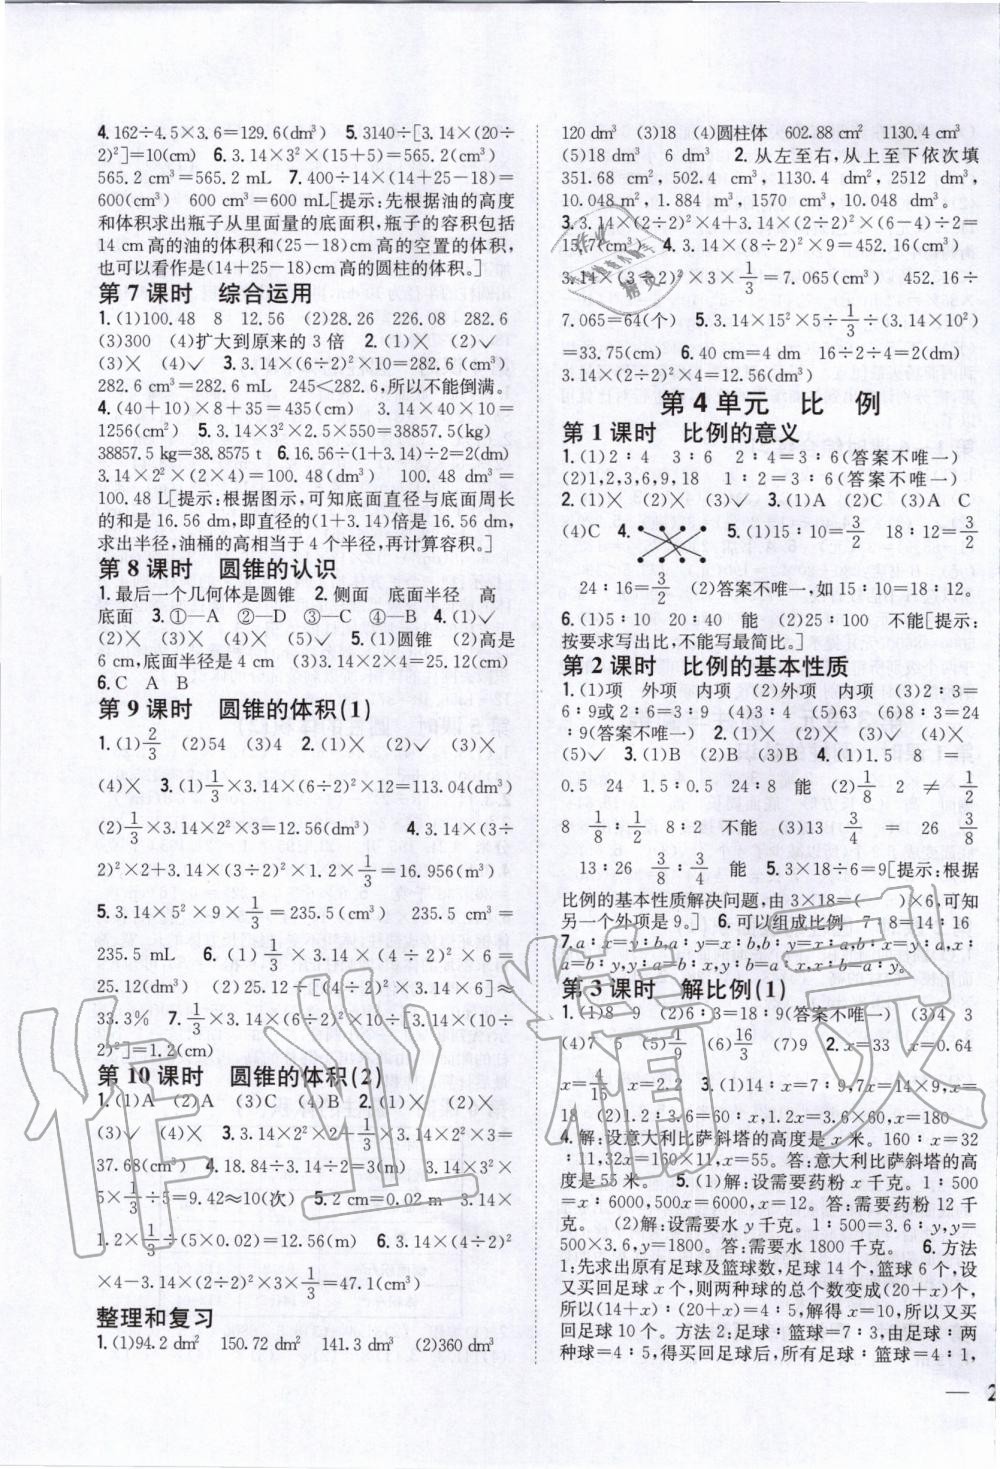 4.162÷4.5×3.6=129.6(dm³)　5.3140÷[3.14×(20÷
2)²]=10(cm)　6.3.14×3²×(15+5)=565.2(cm³)
565.2 cm³=565.2 mL　7.400÷14×(14+25-18)=
600(cm³)　600 cm³=600 mL[提示:先根据油的高度
和体积求出瓶子从里面量的底面积,瓶子的容积包括
14 cm高的油的体积和(25-18)cm高的空置的体积,
也可以看作是(14+25-18)cm高的圆柱的体积。]
第7课时　综合运用
1.(1)100.48　8　12.56　(2)28.26　226.08　282.6
(3)300　(4)扩大到原来的3倍　2.(1)×　(2)√
(3)×　(4)√　3.3.14×(6÷2)²×10=282.6(cm³)
282.6 cm³=282.6 mL　245<282.6,所以不能倒满。
4.(40+10)×8+35=435(cm)　3.14×40×10=
1256(cm²)　5.3.14×3²×2.5×550=38857.5(kg)
38857.5 kg=38.8575 t　6.16.56÷(1+3.14)÷2=2(dm)
3.14×2²×(2×4)=100.48(dm³)　100.48 dm³=
100.48 L[提示:根据图示,可知底面直径与底面周长
的和是16.56 dm,即直径的(1+3.14)倍是16.56 dm,
求出半径,油桶的高相当于4个半径,再计算容积。]
第8课时　圆锥的认识
1.最后一个几何体是圆锥　2.侧面　底面半径　高
底面　3.①—A　②—D　③—C　④—B　4.(1)√
(2)×　(3)×　(4)×　(5)√　5.(1)圆锥　(2)高是
6 cm,底面半径是4 cm　(3)3.14×2×4=25.12(cm)
6.C　A　B
第9课时　圆锥的体积(1)
1.(1)2/3　(2)54　(3)4　2.(1)×　(2)√　(3)×
(4)×　3.(1)1/3×3.14×(6÷2)²×12=113.04(dm³)
(2)1/3×3.14×2²×3=12.56(dm³)　4.3.14×(3÷
2)²×2+3.14×(3÷2)²×1.2×1/3=16.956(m³)
5.3.14×5²×9×1/3=235.5(cm³)　235.5 cm³=
235.5 mL　6.(1)1/3×3.14×(4÷2)²×6=
25.12(dm³)　(2)25.12÷[(4÷2)²×3.14×6]≈
33.3%　7.1/3×3.14×(6÷2)²×10÷[3.14×(10÷
2)²]=1.2(cm)
第10课时　圆锥的体积(2)
1.(1)A　(2)A　(3)C　(4)B　2.(1)×　(2)×
(3)√　(4)×　3.3.14×2²×2+1/3×3.14×2²×3=
37.68(cm³)　4.18.84÷3.14÷2=3(m)　3.14×3²×
5×1/3÷5=9.42≈10(次)　5.2 cm=0.02 m　3.14×
1.2×1/3÷(5×0.02)=12.56(m)　6.3.14×(4÷2)²
×4-3.14×(2÷2)²×3×1/3=47.1(cm³)
整理和复习
1.(1)94.2 dm²　150.72 dm²　141.3 dm³　(2)360 dm³
120 dm³　(3)18　(4)圆柱体　602.88 cm²　1130.4 cm³
(5)18 dm³　6 dm³　2.从左至右,从上至下依次填
351.68 cm²,502.4 cm³,1130.4 dm²,2512 dm³,
10.048 m²,1.884 m³,1570 cm³,10.048 dm³。
3.3.14×(2÷2)²×4+3.14×(2÷2)²×(6-4)÷2=
15.7(cm³)　4.3.14×(8÷2)²×9=452.16(cm³)
3.14×(3÷2)²×3×1/3=7.065(cm³)　452.16÷
7.065=64(个)　5.3.14×15²×5÷1/3÷(3.14×10²)
=33.75(cm)　6.40 cm=4 dm　16÷2÷4=2(dm)
3.14×(2÷2)²×4=12.56(dm³)
第4单元　比　例
第1课时　比例的意义
1.(1)2∶4　3∶6　2∶4=3∶6(答案不唯一)
(2)1,2,3,6,9,18　1∶2=3∶6(答案不唯一)
2.(1)×　(2)×　(3)√　3.(1)A　(2)C　(3)A　C
(4)C　4.　5.(1)15∶10=3/2　18∶12=3/2
24∶16=3/2　(2)答案不唯一,如15∶10=18∶12。
6.(1)5∶10　20∶40　能　(2)25∶100　不能[提示:
按要求写出比,不能写最简比。]
第2课时　比例的基本性质
1.(1)项　外项　内项　(2)外项　内项　(3)2∶3=
6∶9或2∶6=3∶9　(4)3∶4　(5)63　(6)8∶3=24
∶9(答案不唯一)　2.(1)×　(2)×　(3)√　(4)√
(5)√　3.(1)B　(2)B　(3)B　4.(1)1.5　8　=
0.5　24　1.5∶0.5　24∶8　能　(2)1/8　2　≠　1/2
8　1/8∶1/2　8∶2　不能　(3)13　3/4　=　26　3/8
13∶26　3/8∶3/4　能　5.3×18÷6=9[提示:根据
比例的基本性质解决问题,由3×18=(　　)×6,可知
另一个外项是9。]　6.可以组成比例　7∶8=14∶16
7.a∶x=y∶b,a∶y=x∶b,b∶y=x∶a,b∶x=y∶a,x∶
a=b∶y,y∶a=b∶x,y∶b=a∶x,x∶b=a∶y。
第3课时　解比例(1)
1.(1)8　9　(2)6∶3=18∶9(答案不唯一)　(3)4　3
(4)7　5　(5)1/9　(6)16/3　(7)9　2.x=33　x=0.64
x=4/15　x=2.2　3.(1)14∶x=7∶9,7x=14×9,x=
18　(2)1.2∶3.6=60∶x,1.2x=3.6×60,x=180
4.解:设意大利比萨斜塔的高度是x米。160∶x=32
∶11,32x=160×11,x=55。答:意大利比萨斜塔的高
度是55米。　5.(1)解:设需要药粉x千克。1∶500
=x∶6000,500x=6000,x=12。答:需要药粉12千
克。　(2)解:设需要水y千克。1∶500=3.6∶y,y=
500×3.6,y=1800。答:需要水1800千克。　6.方法
1:先求出原有足球及篮球数,足球14个,篮球6个,设
又买回足球x个,则两种球的总个数变成(20+x)个,
所以(14+x)∶(20+x)=4∶5,解得x=10,所以又买
回足球10个。方法2:足球∶篮球=7∶3,由足球∶两
种球=4∶5,得买回足球后,所有足球∶篮球=4∶1,
— 2
作业精灵